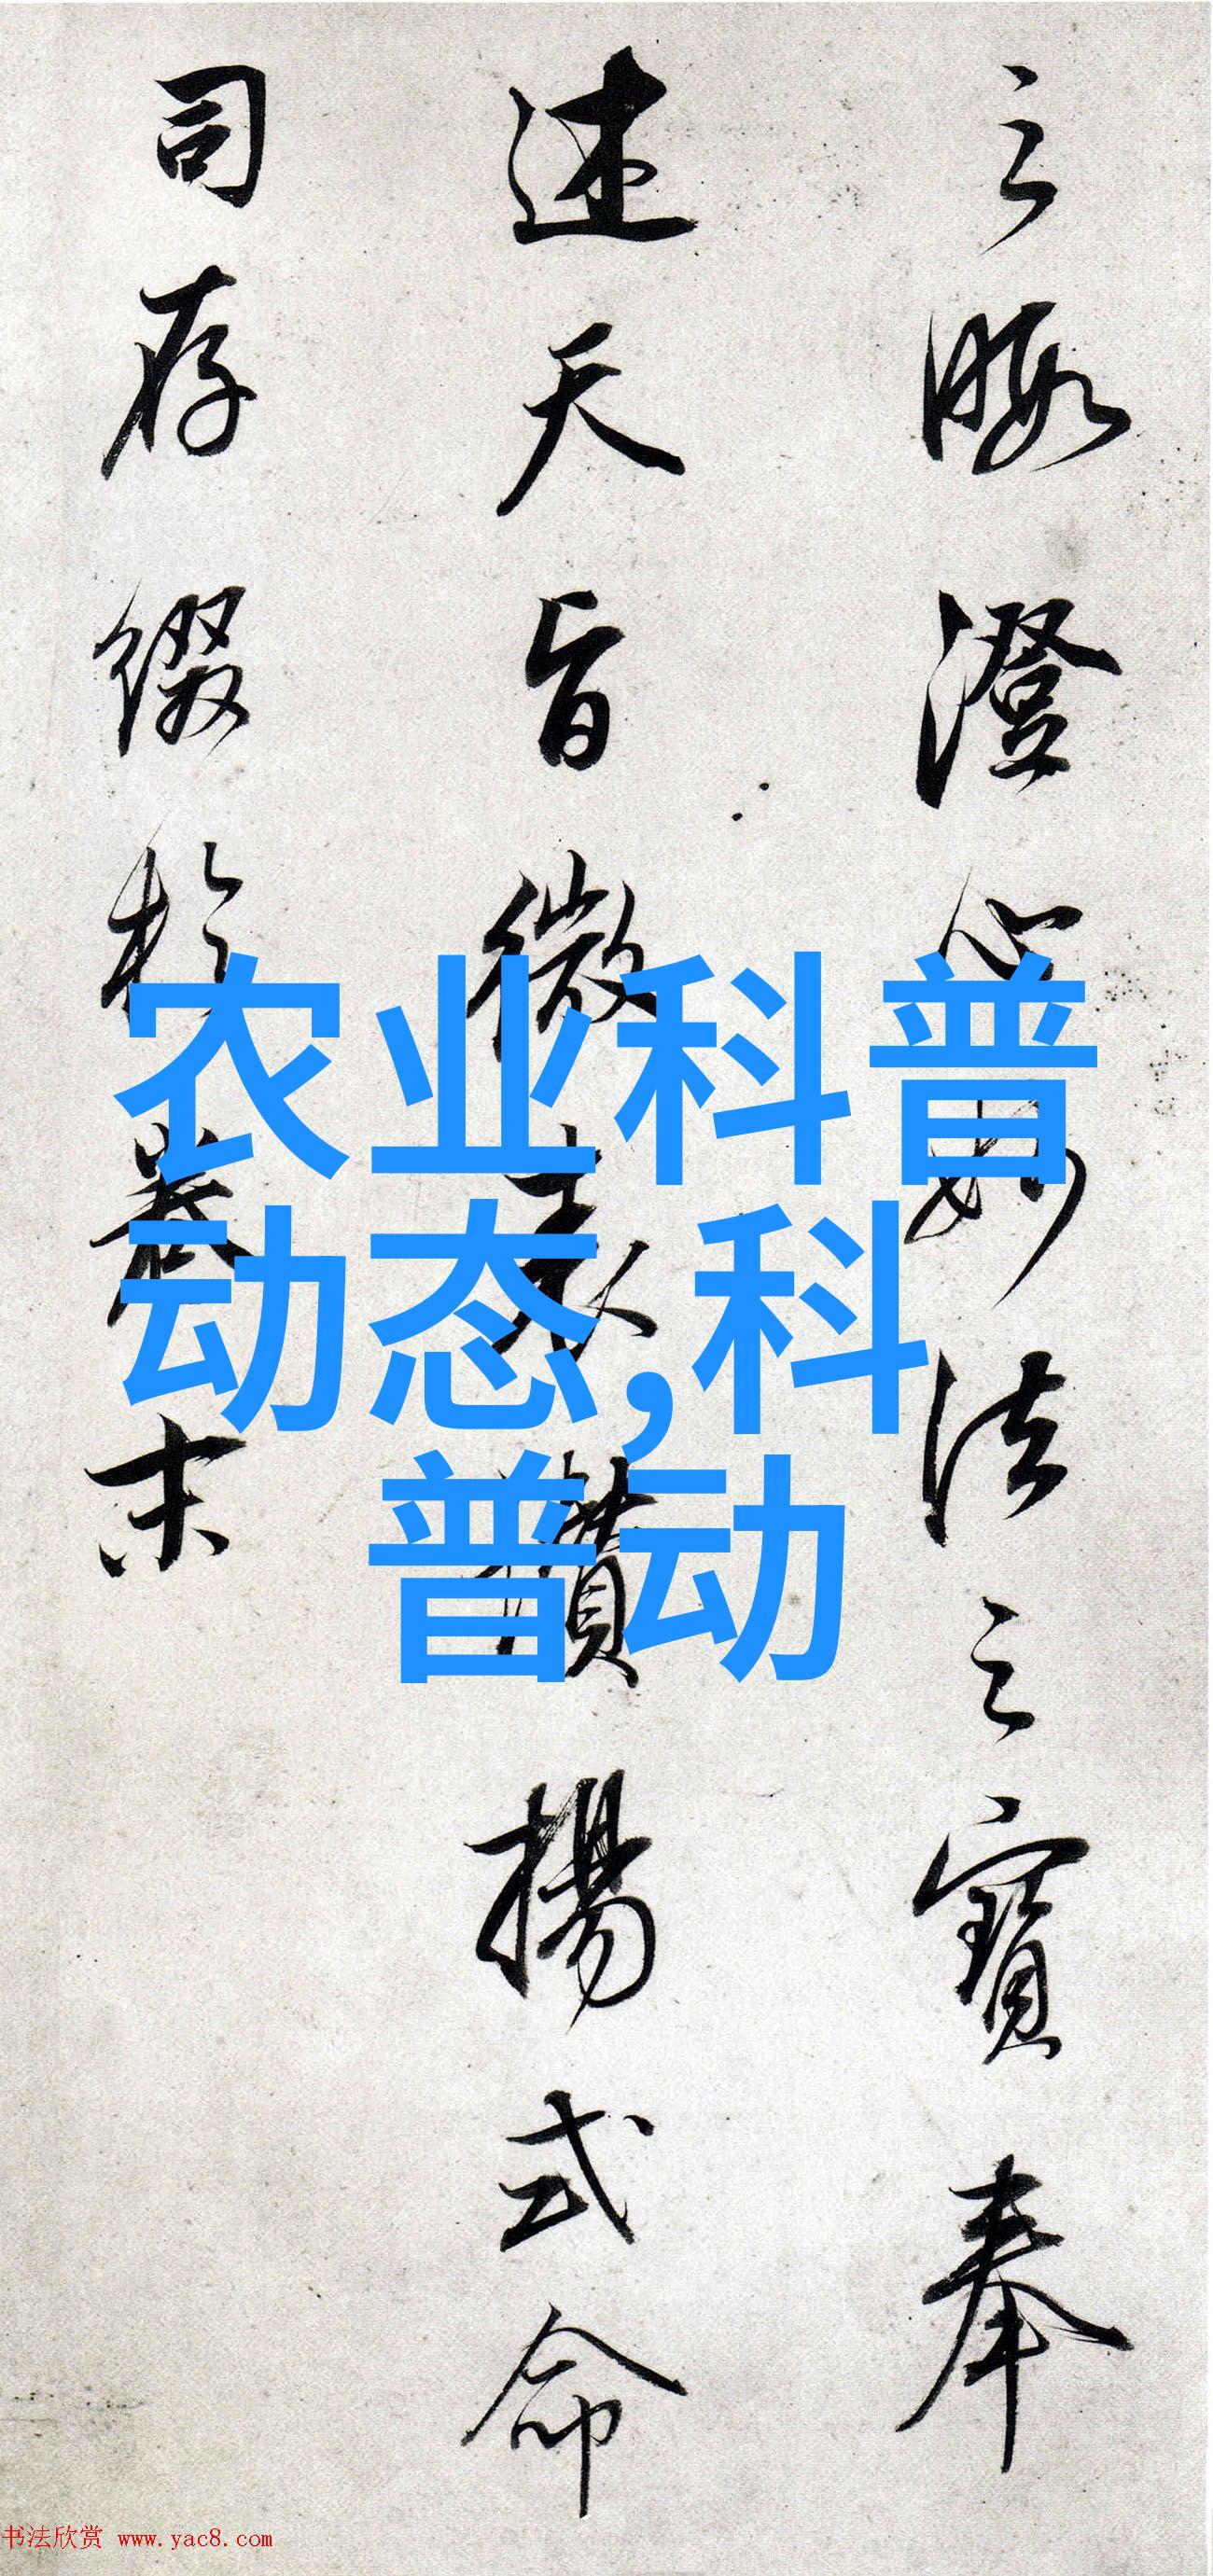 之暇澄心妙法之寶奉
述天旨微表讚揚式命
司存綴於卷末
农业科普
动态,科
普动
书法欣赏 www.yac8.com